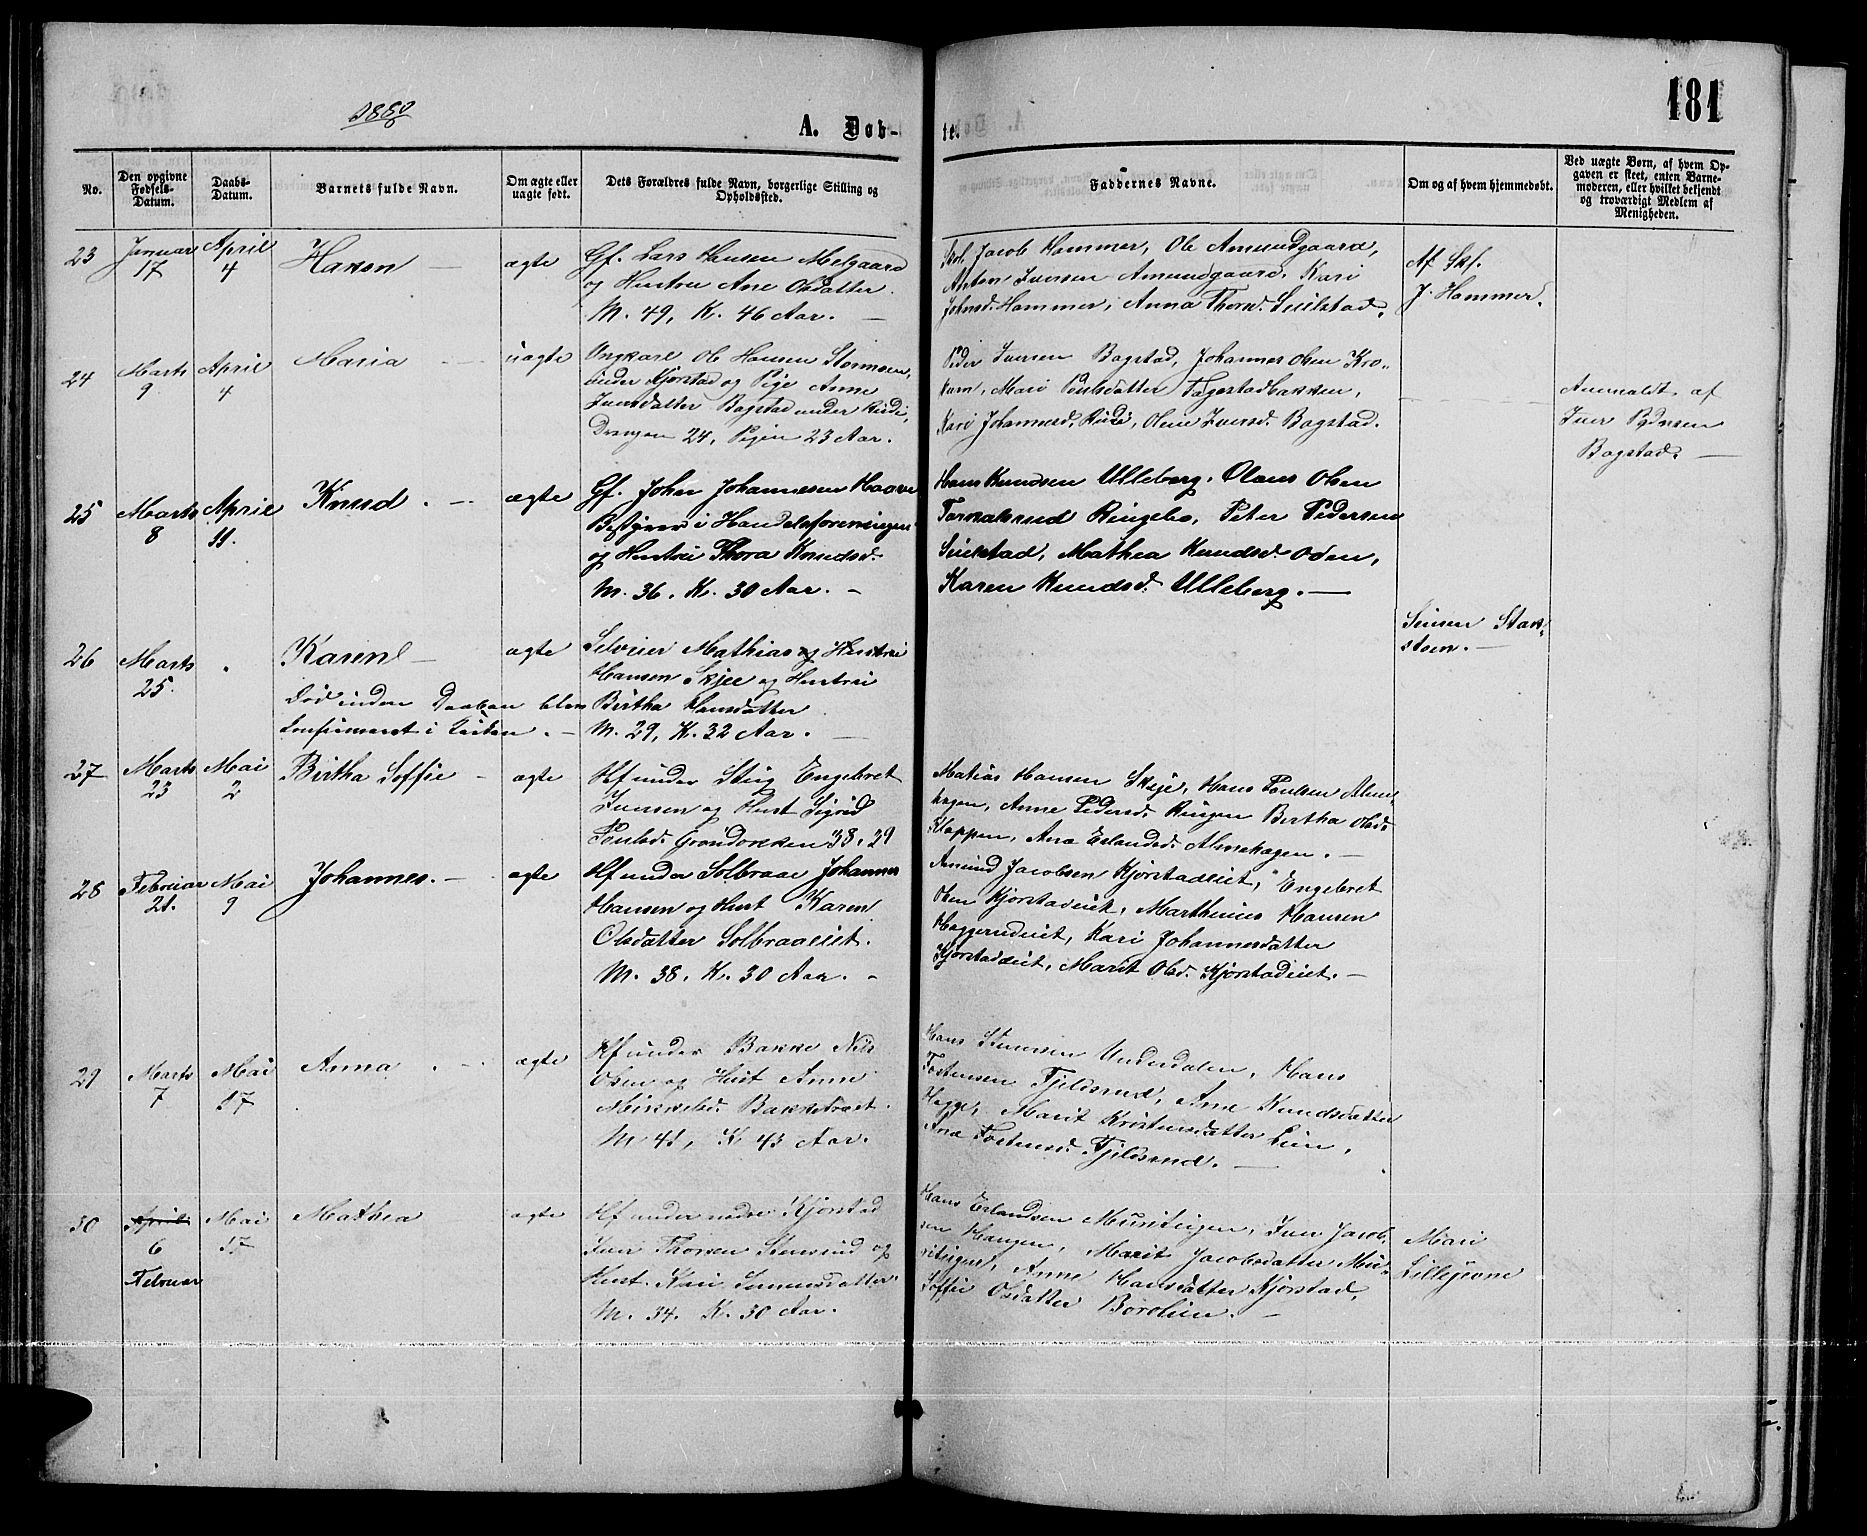 1880
A. Døb-
te.
181
No.
Den opgivne Fødsels-Datum.
Daabs-Datum.
Barnets fulde Navn.
Om ægte eller uægte født.
Dets Forældres fulde Navn, borgerlige Stilling og Opholdssted.
Faddernes Navne.
Om og af hvem hjemmedøbt.
Ved uægte Børn, af hvem Opgaven er skeet, enten Barnemoderen, eller hvilket bekjendt og troværdigt Medlem af Menigheden.
23 Januar 17 April 4 Haken ægte
Gf. Lars Hansen Melgaard
og Hustru Ane Olsdatter.
M. 49, K. 46 Aar.
Jacob Hammer, Ole Amundgaard,
Anton Iversen Amundgaard, Kari
Johnsd. Hammer, Anna Thord. Seilstad.
Af Skl.
J. Hammer.
24 Marts 9 April 4 Maria uægte
Ungkarl Ole Hansen Stormoen,
under Kjørstad og Pige Anne
Iversdatter Bagstad under
Drengen 24, Pigen 23 Aar.
Peder Iversen Bagstad, Johannes Olsen Kro-
kum, Mari Poulsdatter Fagstadbakken,
Kari Johannesd. Oline Iversd. Bagstad.
Anmeldt af
Iver
Bagstad.
25 Marts 8 April 11. Knud ægte
Gf. Johan Johannesen Haave
Bestyrer i Handelsforeningen
og Hustru Thora Knudsd.
M. 36. K. 30 Aar.
Hans Knudsen Ulleberg, Olaus Olsen
Ringebo, Peter Pedersen
Seielstad, Mathea Knudsd. Oden,
Karen Knudsd. Ulleberg.
26 Marts 25. Karen ægte
Død inden Daaben blev
confirmeret i Kirken.
Selveier Mathias og Hustru
Hansen Skjee og Hustru
Birtha Hansdatter
M. 29, K. 32 Aar.
27 Marts 23 Mai 2 Birtha Soffie ægte
Hf under Stig Engebret
Iversen og Hust Sigrid
Poulsd. 38, 29
Matias Hansen Skeje, Hans Poulsen Alme-
hagen, Anne Pedersd. Ringen Bertha Olsd.
Kloppen, Ane Erlandsd. Almehagen.
28 Februar 21. Mai 9 Johannes. ægte
Hf under Solbraae Johannes
Hansen og Hust Karen
Olsdatter Solbraaeiet.
M. 38, K. 30 Aar.
Amund Jacobsen Kjørstadeiet, Engebret
Olsen Kjørstadeiet, Marthinus Hansen
Haggerudeiet, Kari Johannesdatter
Kjørstadeiet, Marit Olsd. Kjørstadeiet.
29 Marts 7 Mai 17 Anna ægte
Hf under Bakke Nils
Olsen og Hust Anne
Mikkelsd. Bakketræet.
M 41, K 43 Aar.
Hans Simensen Underdalen, Hans
Tostensen Fjeldsrud, Ane Knudsdatter
Hagge, Marit Kristensdatter Lien,
Ane Tostensd. Fjeldsrud.
30 April 6 Februar Mai 17 Mathea ægte
Hf under nedre Kjørstad
Iver Thorsen Stensrud og
Hust. Kari Simensdatter.
M. 34. K. 30 Aar.
Hans Erlandsen Musituigen, Iver Jacob-
sen Haugen, Marit Jacobsdatter Mu-
Anne Hansdatter Kjørstad,
Soffie Olsdatter Borolien.
Mari
Lillejevne